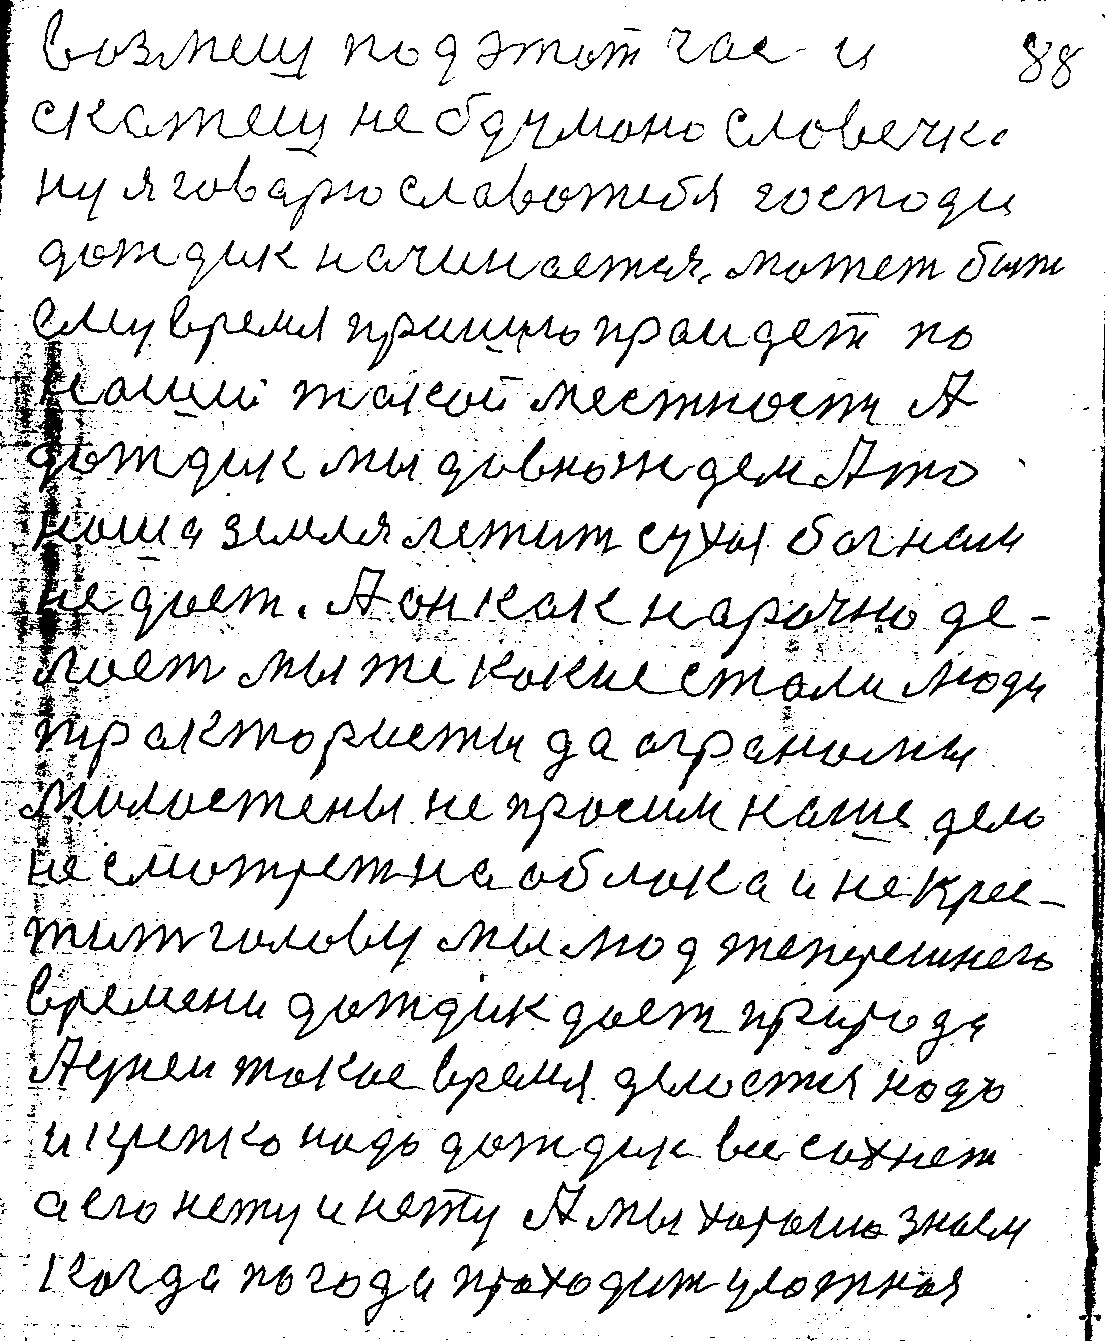 возмеш под этот час и 88
скажеш не обдумано словечко
ну я говарю слава тебя господи
дождик начинается. может быть
ему время пришло праидет по
нашй такой местности А
дождик мы давно ждем А то
наша земля лежит сухая бог нам
не дает. А он как нарочно де-
лает мы же какие стали люди
трактористы да аграномы
милостены не просим наше дело
не смотрет на облака и не крес-
тит голову мы люд теперешнего
времени дождик дает природа
А у неи такое время делается надо
и крепко надо дождик все сохнет
а его нету и нету А мы хорошо знаем
когда погода проходит уложная